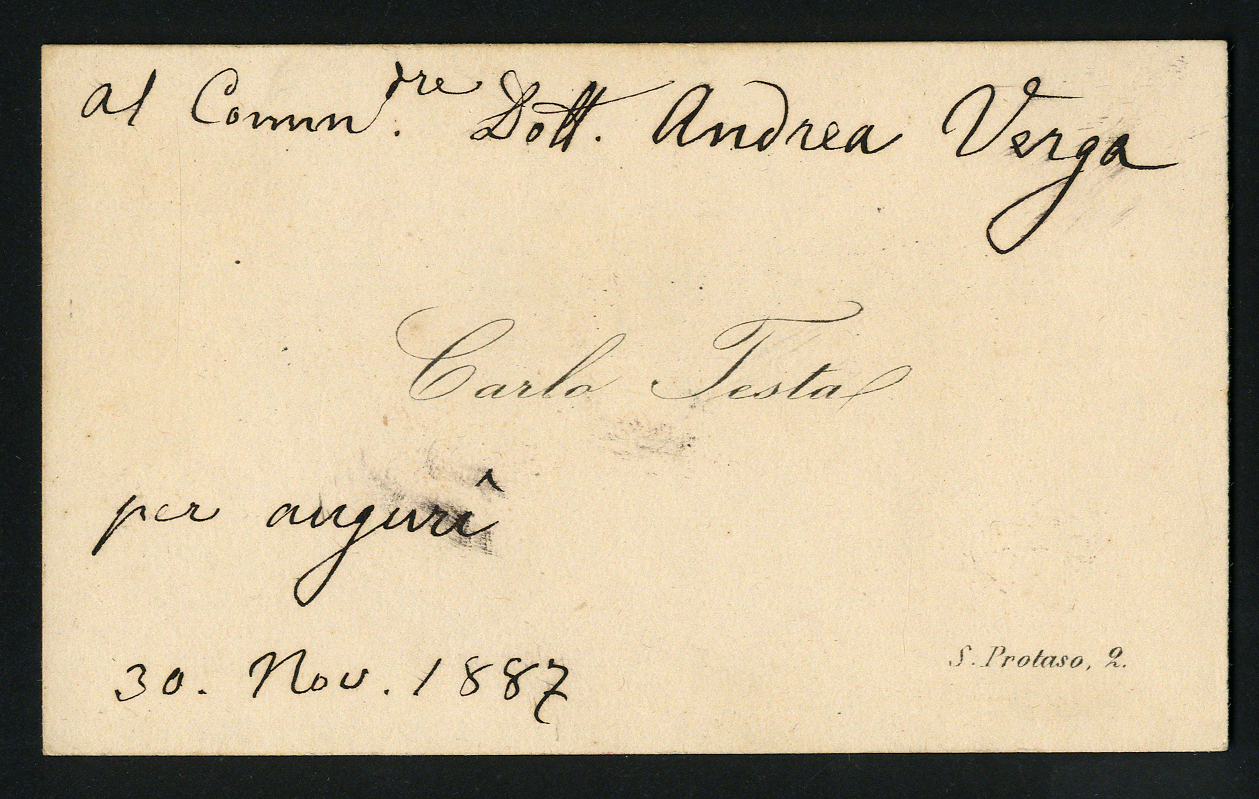 al Comm.dre Dott. Andrea Verga
Carlo Testa
per augurî
30. Nov. 1887
S. Protaso, 2.